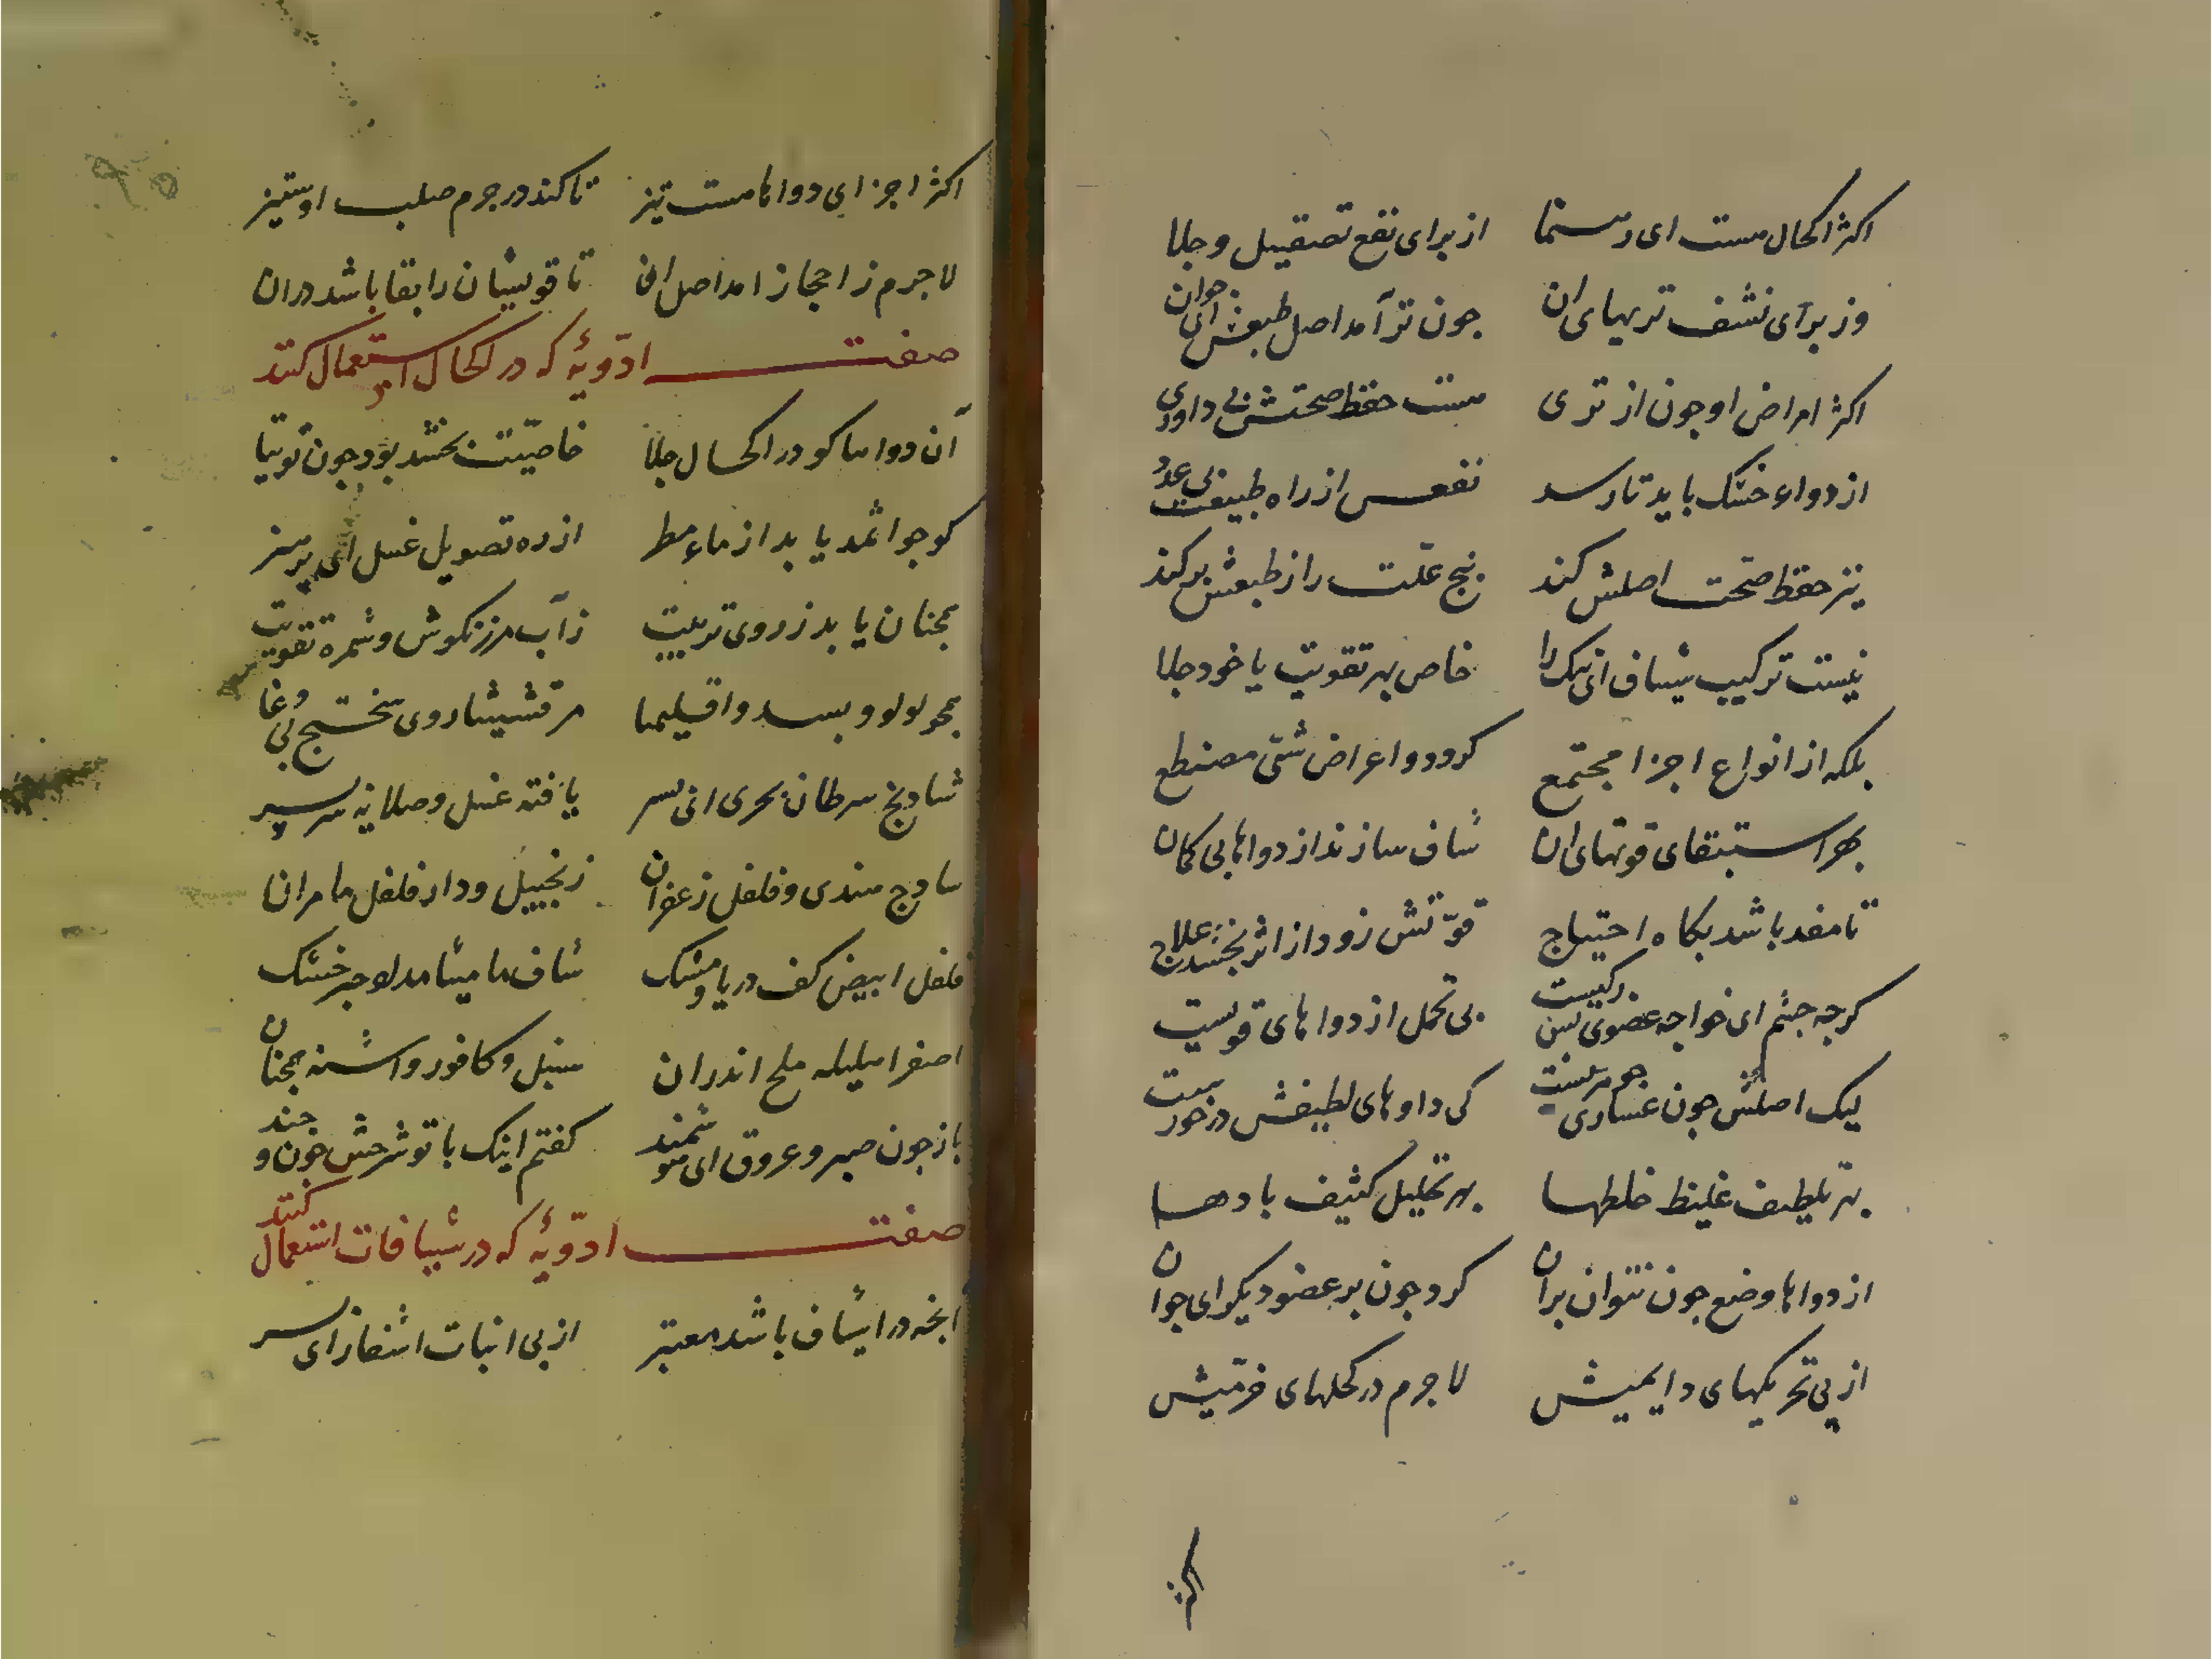 اکثر اکحال هست ای رهنما از برای نفع تصقیل و جلا
وز برای نشف تریهای ان جون تر آمد اصل طبعش ای جوان
اکثر امراض او جون از تری هست حفظ صحتش بی داوری
از دواء خشک باید تا رسد نفعس از راه طبیعت بی عدد
نیز حفظ صحت اصلش کند بیخ علت را ز طبعش بر کند
نیست ترکیب شیاف ای نیک را خاص بهر تقویت یا خود جلا
بلکه از انواع اجزا مجتمع کردد و اعراض شتی مصطنع
بهر استبقای قوتهای ان شاف سازند از دواها بی کمان
تا مفد باشد بکاه احتیاج قوتش زود از اثر بخشد علاج
کرچه جشم ای خواجه عضوی بس رکیست بی تحمل از دواهای قویست
لیک اصلش جون غساری جوهریست کی داوهای لطیفش درخورست
بهر تلطیف غلیظ خلطها بهر تحلیل کثیف بادها
از دواها وضع جون نتوان بران کرد جون بر عضو دیکر ای جوان
از پی تحریکهای دایمیش لاجرم در کحلهای فرمیش
اکثر
اکثر اجزای دواها هست تیز تا کند در جرم صلب او ستیز
لاجرم ز احجاز امد اصل ان تا قویشان را بقا باشد دران
صفت ادویهٔ که در اکحال استعمال کنند
آن دواها کو در اکحال جلا خاصیت بخشد بود جون توتیا
کو جو اثمد یابد از ماء مطر از ره تصویل غسل ای پر هنر
همجنان یابد ز روی تربیت ز آب مرزنکوش و ثمره تقویت
همجو لولو و بسد و اقلیمیا مرقشیشا روی سختج بی دغا
شادنج سرطان بحری ای بسر یافته غسل و صلایه سر بسر
سادج هندی و فلفل زعفران زنجبیل و دار فلفل مامران
فلفل ابیض کف دریا و مشک شاف مامیثا مد لاجبر خشک
اصفر اهلیله ملح اندران سنبل و کافور و اشنه همجنان
باز جون صبر و عروق ای هوشمند کفتم اینک با تو شرحش جون و جند
صفت ادویهٔ که در شیافات استعمال کنند
انجه در اشیاف باشد معتبر از پی انبات اشفار ای سر